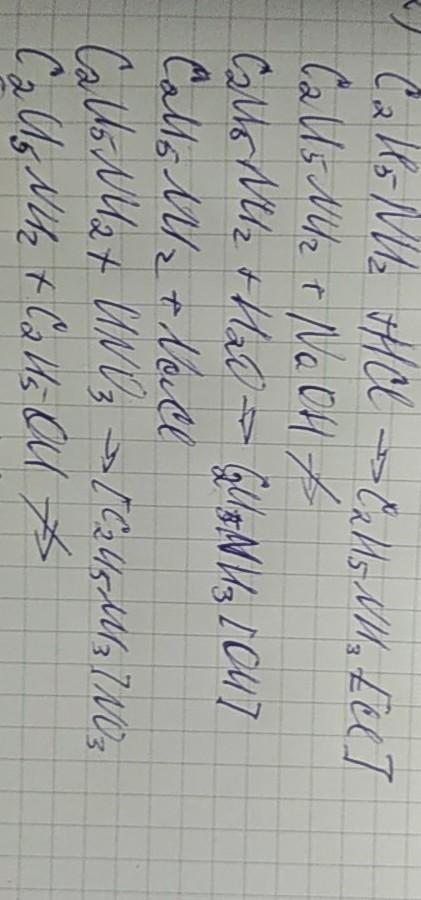 C₂H₅NH₂ + HCl → C₂H₅NH₃[Cl]
C₂H₅NH₂ + NaOH ↛
C₂H₅NH₂ + H₂O → C₂H₅NH₃[OH]
C₂H₅NH₂ + NaCl
C₂H₅NH₂ + HNO₃ → [C₂H₅NH₃]NO₃
C₂H₅NH₂ + C₂H₅OH ↛